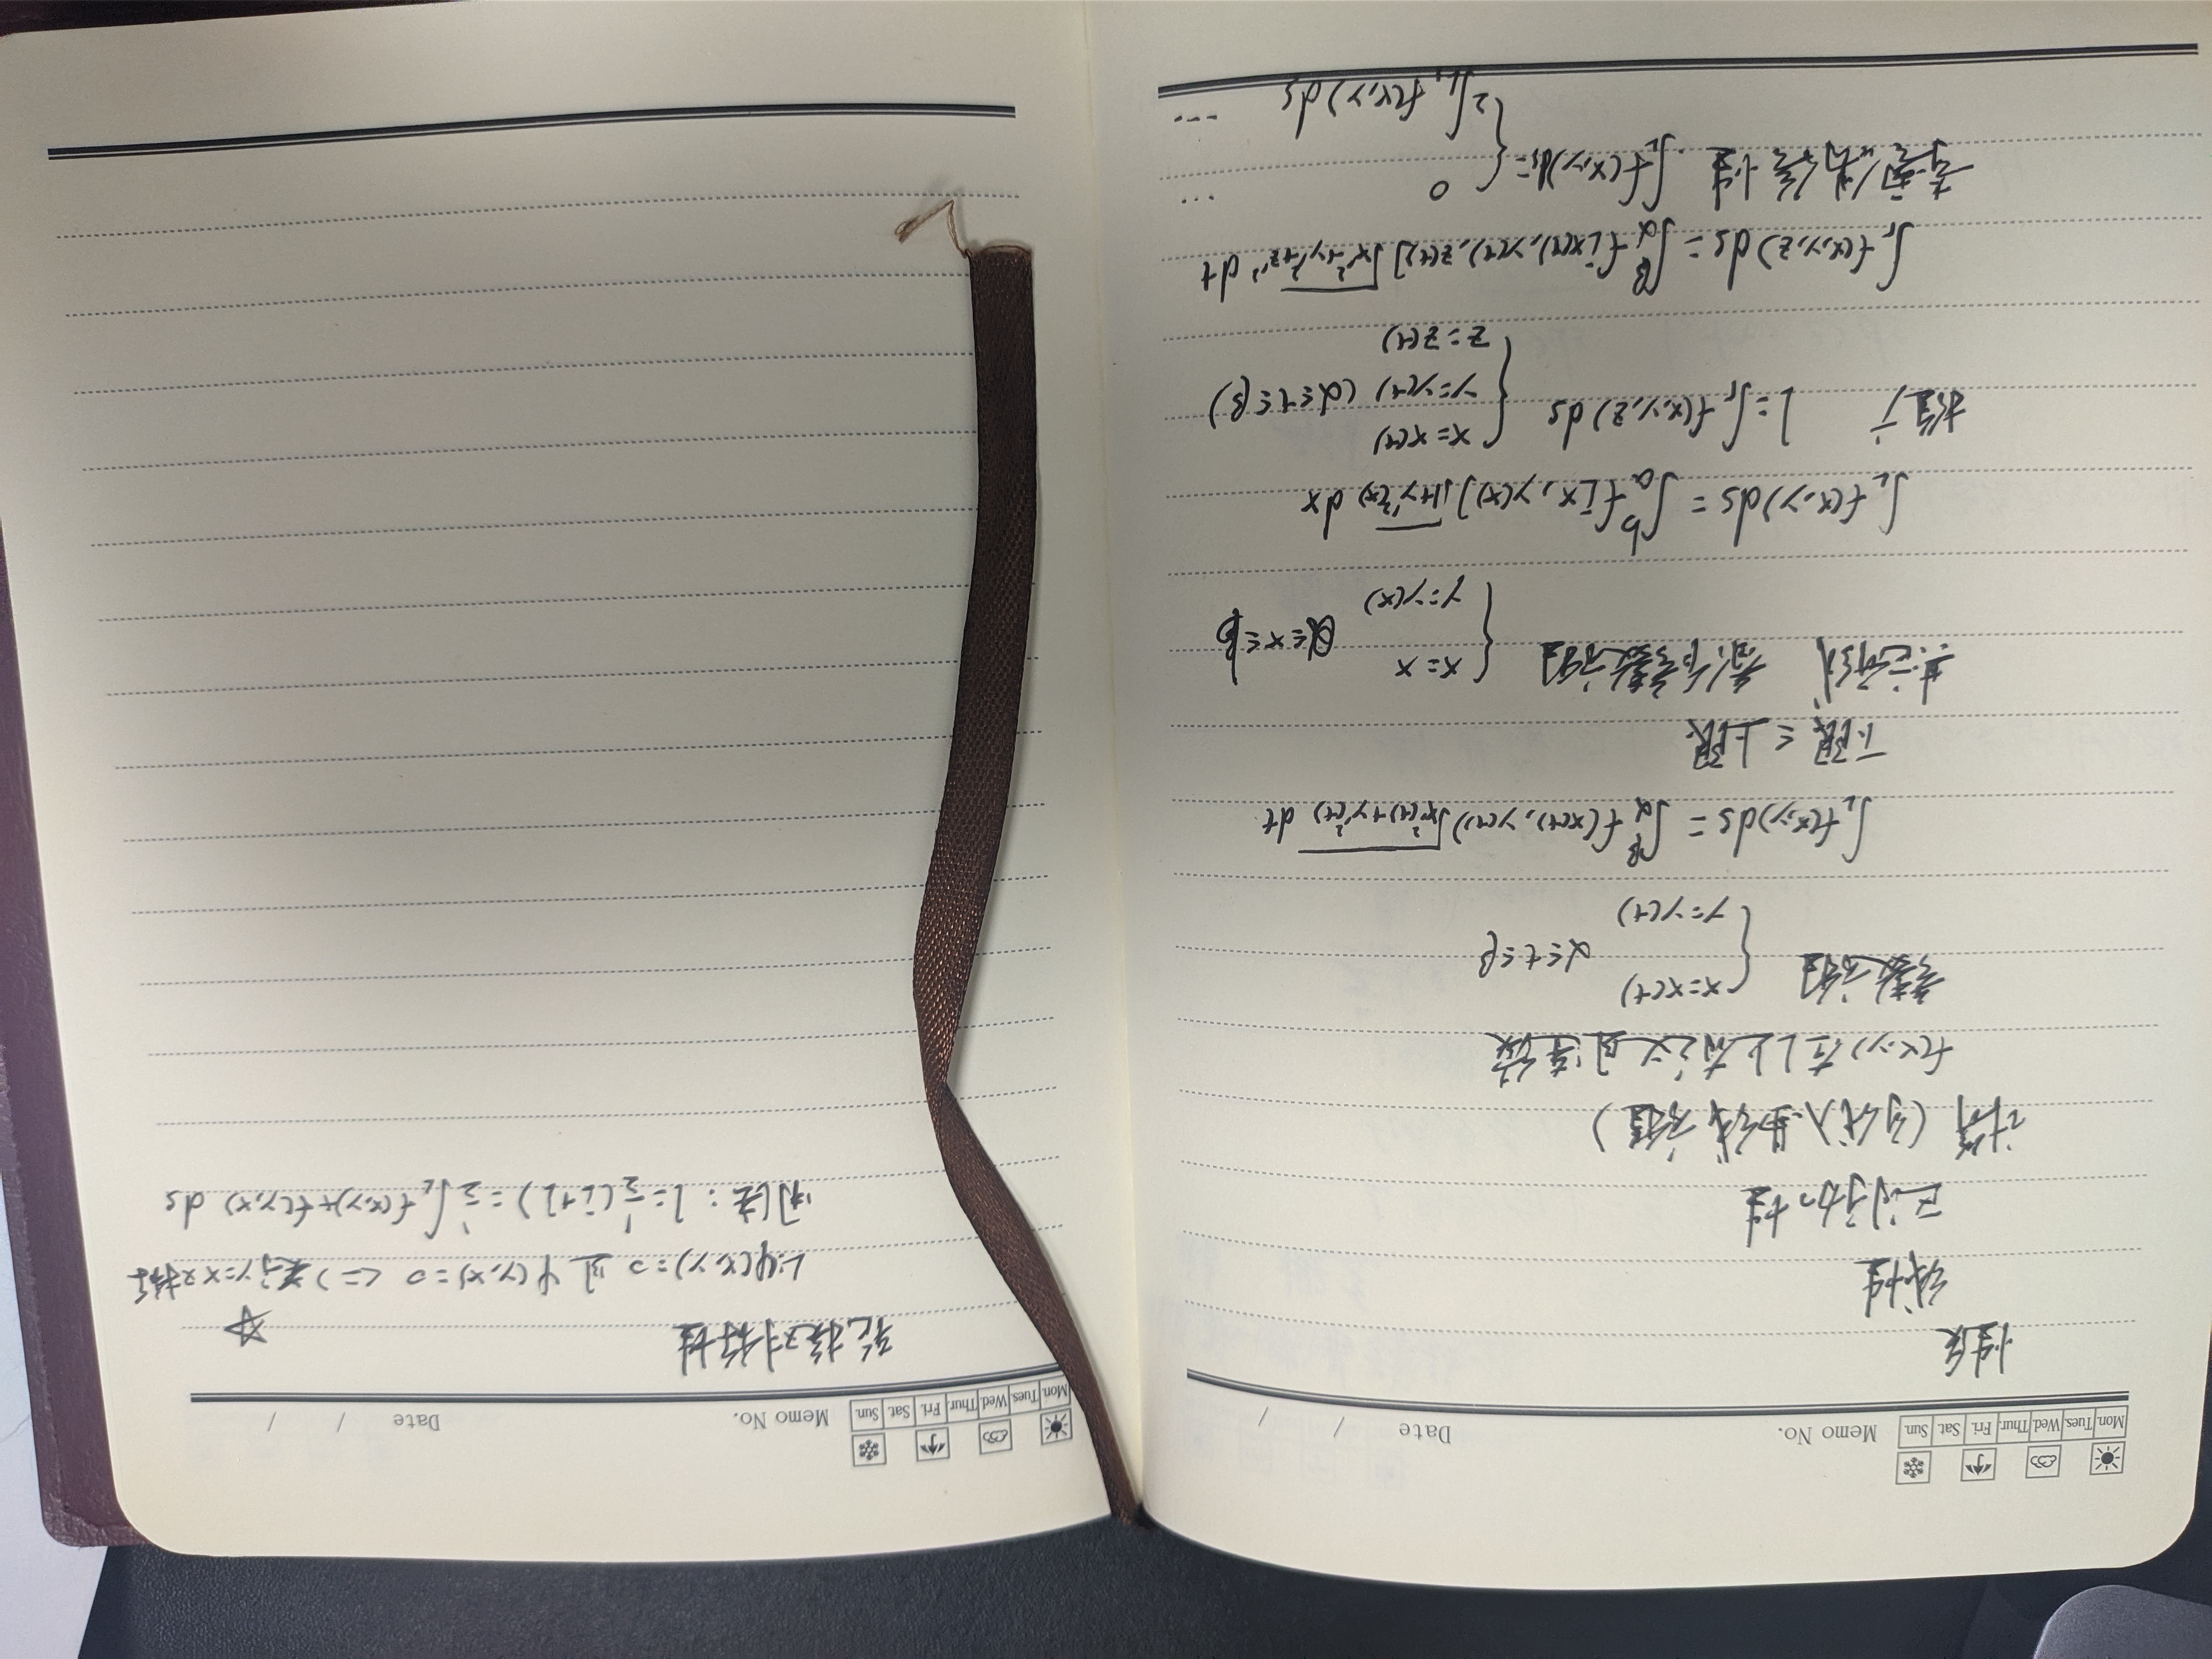 Mon. Tues. Wed. Thur. Fri. Sat. Sun. Memo No. Date / /
性质
线性
可加性
计算 (可代入曲线方程)
f(x,y)在L上有定义且连续
参数方程 { x=x(t)
y=y(t) α≤t≤β
∫_L f(x,y)ds = ∫_α^β f(x(t),y(t))√(x'²(t)+y'²(t)) dt
下限≤上限
参数方程 { x=x
y=y(x) a≤x≤b
∫_L f(x,y)ds = ∫_a^b f[x,y(x)]√(1+y'²(x)) dx
推广 I=∫_Γ f(x,y,z)ds { x=x(t)
y=y(t) (α≤t≤β)
z=z(t)
∫_Γ f(x,y,z)ds = ∫_α^β f[x(t),y(t),z(t)]√(x'²+y'²+z'²) dt
∫_L f(x,y)ds= { 0 ...
2∫_L₁ f(x,y)ds ...
Mon. Tues. Wed. Thur. Fri. Sat. Sun. Memo No. Date / /
轮换对称性 ☆
L:φ(x,y)=0 且 φ(y,x)=0 <=> 关于y=x对称
用法: I=½(I+I)=½∫_L f(x,y)+f(y,x) ds